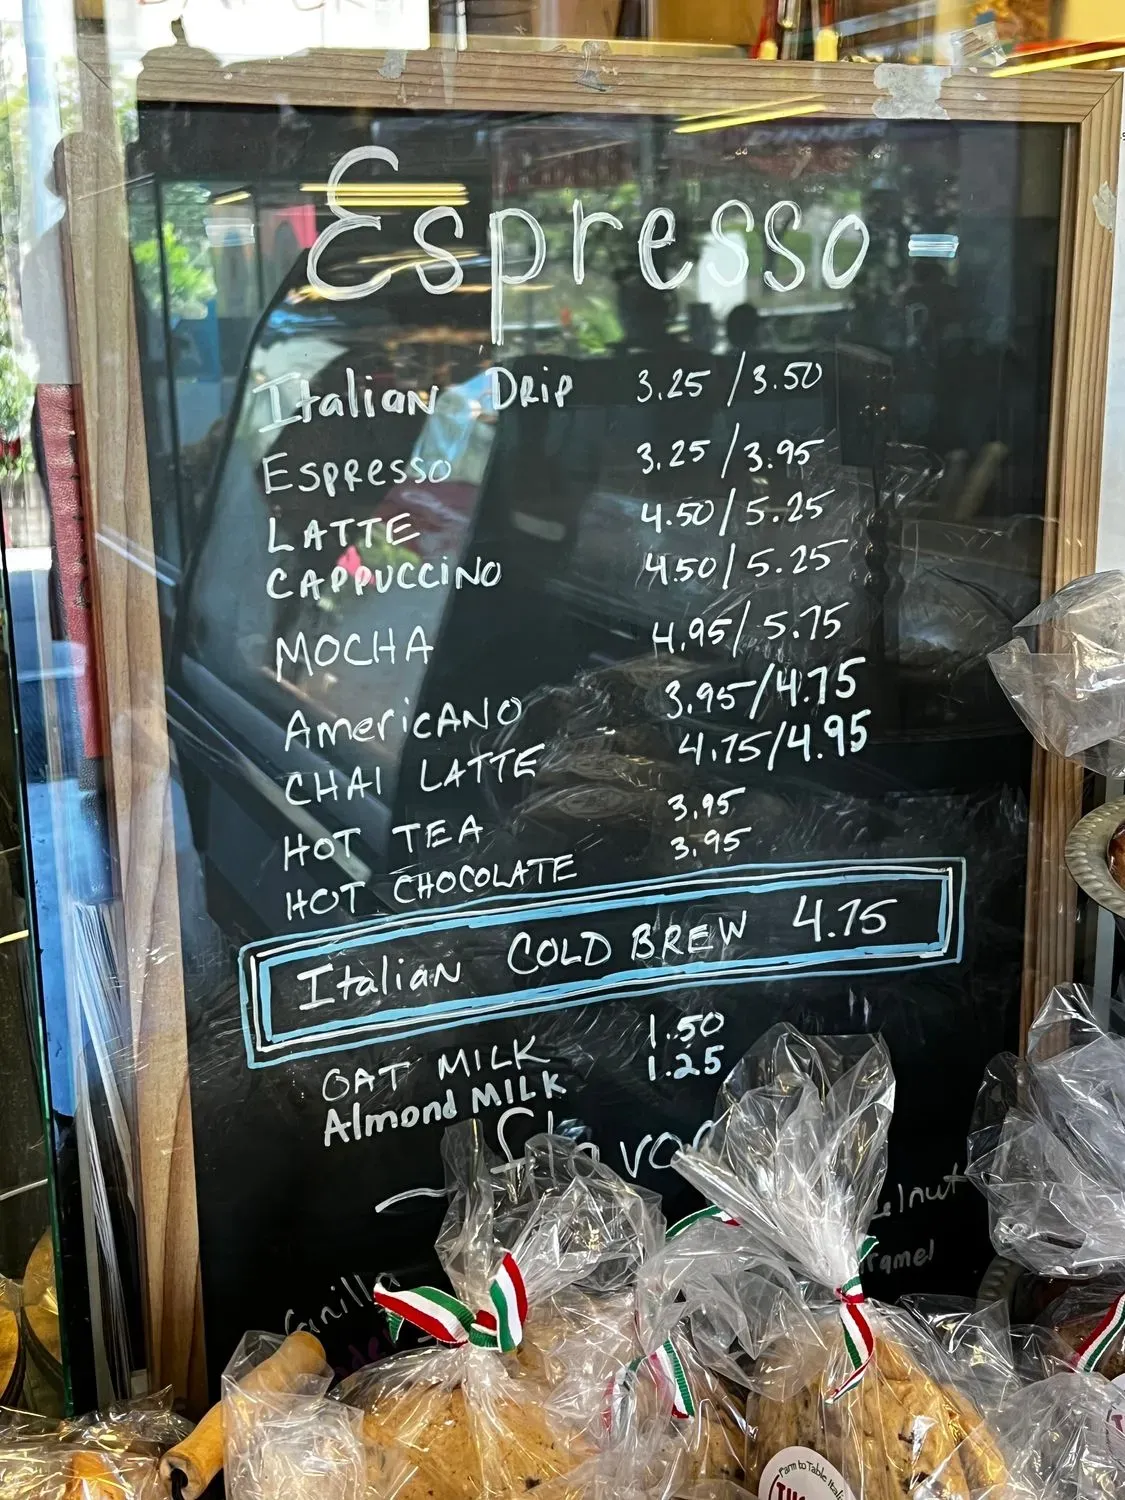 - Espresso -
Italian Drip 3.25 / 3.50
Espresso 3.25 / 3.95
LATTE 4.50 / 5.25
CAPPUCCINO 4.50 / 5.25
MOCHA 4.95 / 5.75
AmericANO 3.95 / 4.75
CHAI LATTE 4.75 / 4.95
HOT TEA 3.95
HOT CHOCOLATE 3.95
Italian COLD BREW 4.75
OAT MILK 1.50
Almond MILK 1.25
Vanilla
Farm to Table Ital